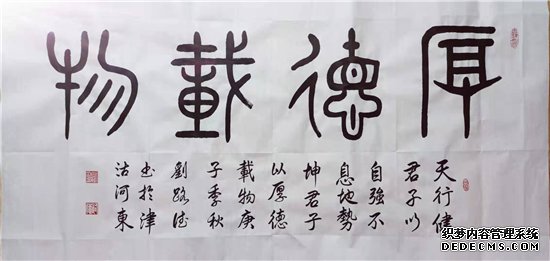 厚德載物
天行健
君子以
自強不
息地勢
坤君子
以厚德
載物庚
子季秋
劉路
书於津
沽河東
织梦内容管理系统
DEDECMS.COM